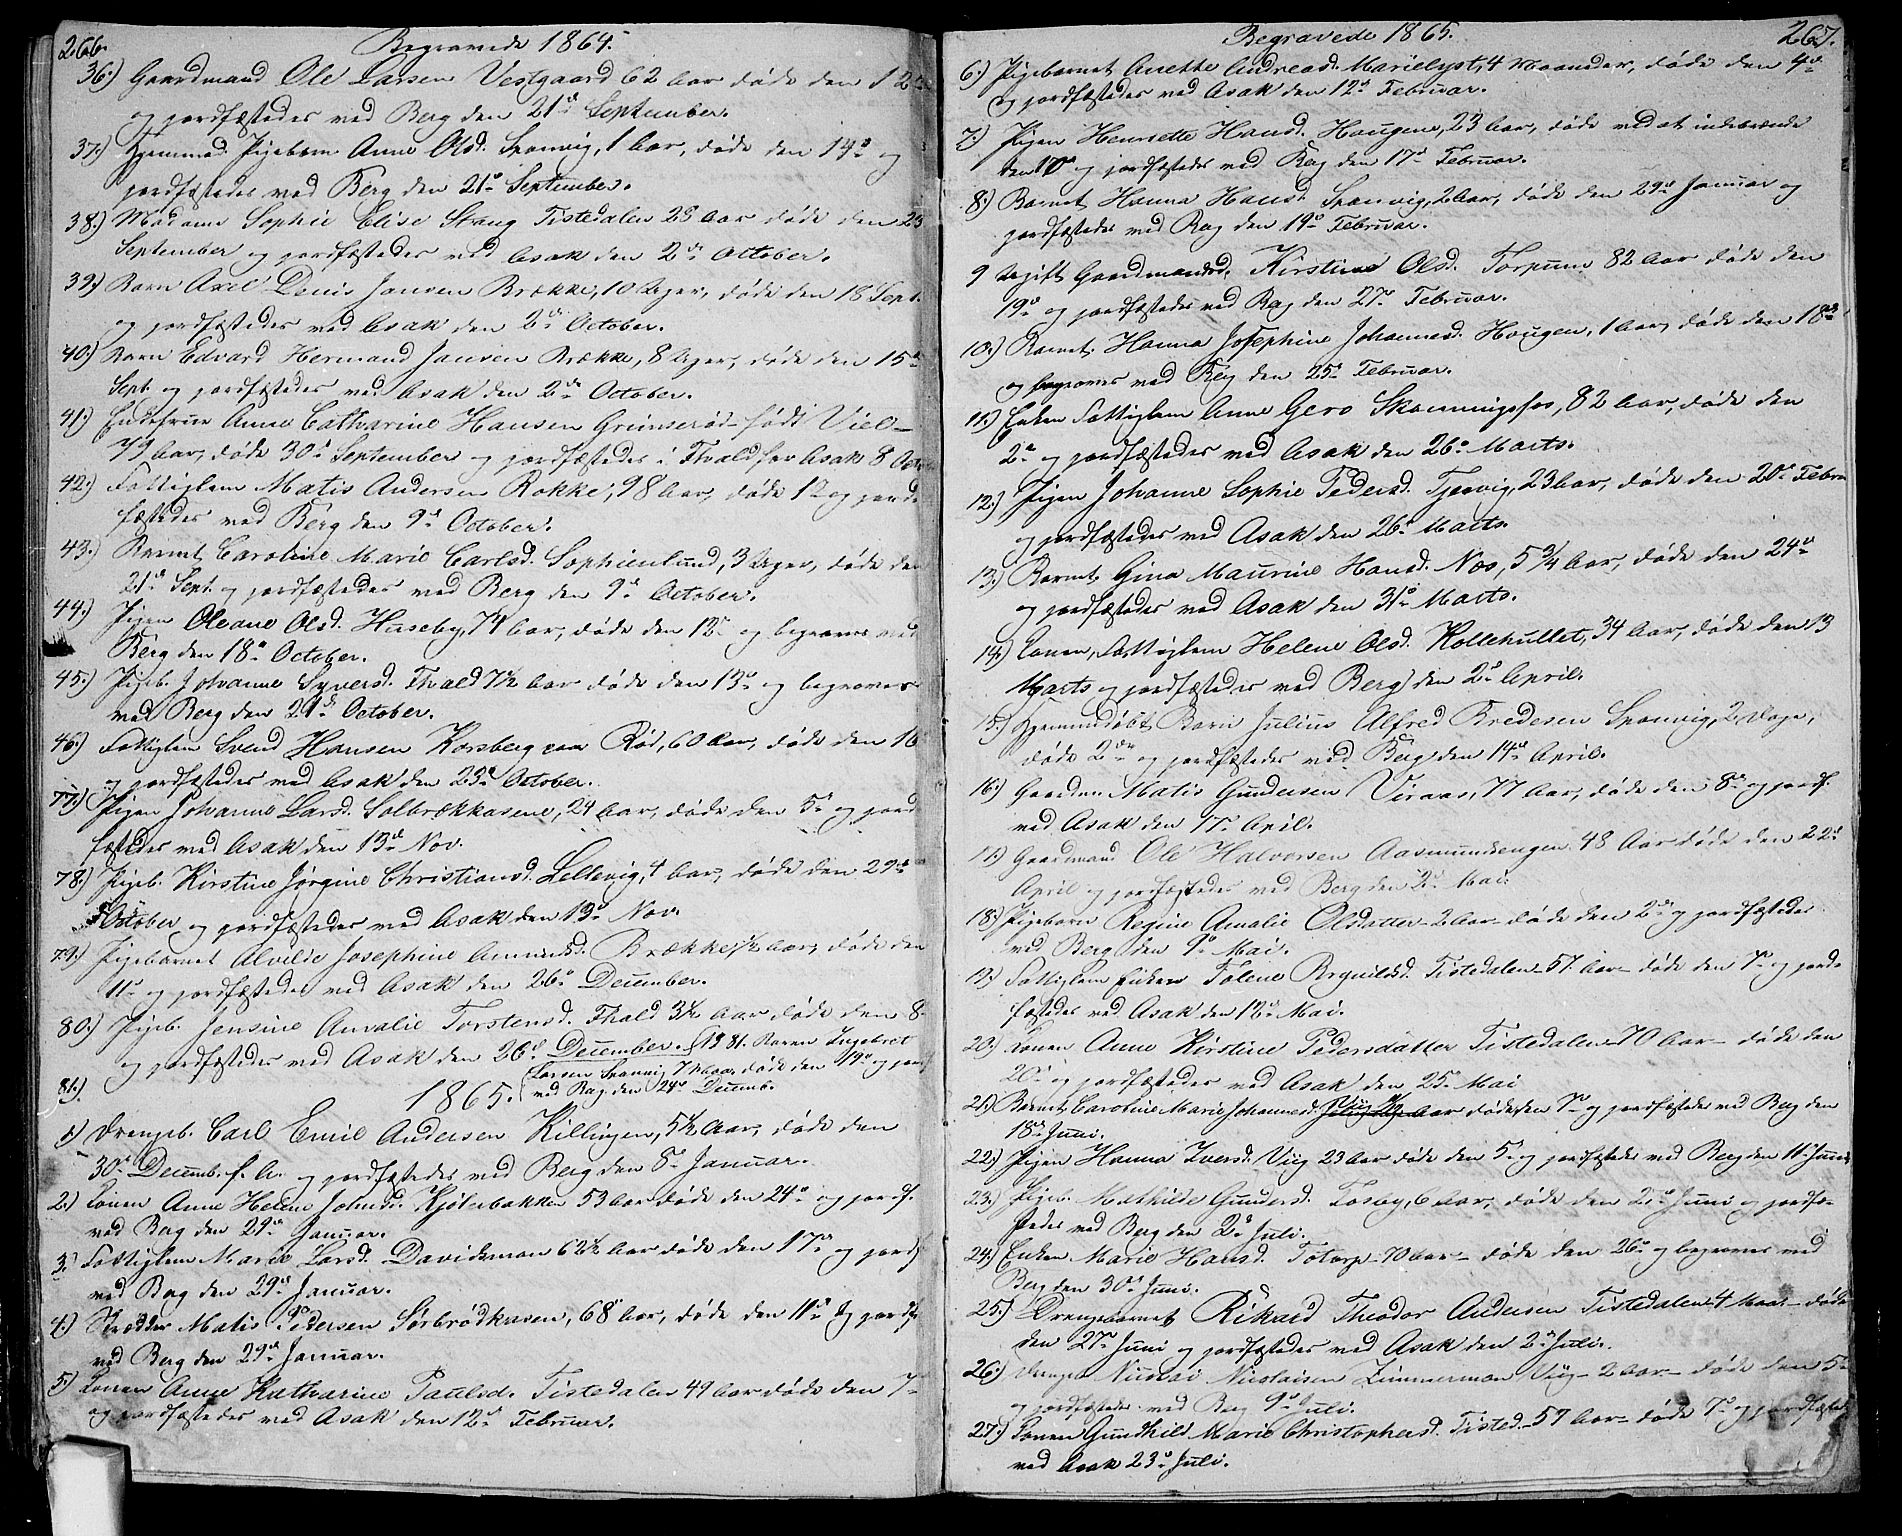 266.
Begravede 1864.
36.) Gaardmand Ole Larsen Vestgaard 62 Aar døde den 12
og jordfæstedes ved Berg den 21de September.
37.) Hjemmed. Pigebarn Anne Olsd. Sponvig, 1 Aar, døde den 14de og
jordfæstedes ved Berg den 21de September.
38.) Madame Sophie Elise Stang Tistedalen 28 Aar døde den 23
September og jordfæstedes ved Asak den 2den October.
39.) Barn Axel Denis Jansen Brække, 10 Uger, døde den 18 Sept.
og jordfæstedes ved Asak den 2den October.
40.) Barn Edvard Hermand Jansen Brække, 8 Uger, døde den 15de
Sept. og jordfæstedes ved Asak den 2den October.
41.) Enkefrue Anne Catharine Hansen Grimserød født Viel-
79 Aar, døde 30te September og jordfæstedes i Fhald for Asak 8 Octo
42.) Fattiglem Matis Andersen Rokke, 98 Aar, døde 12 og jord-
fæstedes ved Berg den 9de October.
43.) Barnet Caroline Marie Carlsd. Sophienlund, 3 Uger, døde den
21de Sept. og jordfæstedes ved Berg den 9de October.
44.) Pigen Oleane Olsd. Huseby, 74 Aar, døde den 12te og begraves ved
Berg den 18de October.
45.) Pigeb. Johanne Syversd. Fhald 7½ Aar døde den 13de og begraves
ved Berg den 21de October.
46.) Fattiglem Svend Hansen Korsberg Rød, 60 Aar, døde den 16
og jordfæstedes ved Asak den 23de October.
77.) Pigen Johanne Larsd. Solbrækkasene, 24 Aar, døde den 5te og jord
fæstedes ved Asak den 13de Nov.
78.) Pigeb. Kirstine Jørgine Christiansd. Lellevig, 4 Aar, døde den 29de
October og jordfæstedes ved Asak den 13de Nov.
79.) Pigebarnet Alvilde Josephine Amundsd. Brække, ½ Aar, døde den
11te og jordfæstedes ved Asak den 26de December.
80.) Pigeb. Jensine Amalie Torstensd. Fhald 3½ Aar døde den 8
og jordfæstedes ved Asak den 26de December. No 81. Barn Ingebret
Larsen Sponvig 7 Maan. døde den 19de og jordf
ved Berg den 24de Decemb.
81.)
1865.
1.) Drengeb. Carl Emil Andersen Killingen, 5½ Aar, døde den
30te Decemb. f. A. og jordfæstedes ved Berg den 8de Januar.
2.) Konen Anne Helene Johnsd. Kjølerbakken 53 Aar døde den 24de og jordf.
ved Berg den 29de Januar.
3.) Fattiglem Marie Larsd. Davidsmon 62½ Aar døde den 17de og jordf
ved Berg den 29de Januar.
4.) Skrædder Matis Pedersen Sørbrødkasen, 68 Aar, døde den 11te og jordf
ved Berg den 29de Januar.
5.) Konen Anne Katharine Paulsd. Tistedalen 49 Aar døde den 7de
og jordfæstedes ved Asak den 12te Februar.
267.
Begravede 1865.
6.) Pigebarnet Anette Andreasd. Marielyst, 4 Maaneder, døde den 4de
og jordfæstedes ved Asak den 12te Februar.
7.) Pigen Henriette Hansd. Haugene, 23 Aar, døde ved at indebrænde
den 10de og jordfæstedes ved Berg den 17de Februar.
8.) Barnet Hanna Hansd. Sponvig, 2 Aar, døde den 29de Januar og
jordfæstedes ved Berg den 19de Februar.
9 Ugift Gaardmandsd. Kirstine Olsd. Torpum 82 Aar døde den
19de og jordfæstedes ved Berg den 27de Februar.
10.) Barnet Hanna Josephine Johannesd. Hougen, 1 Aar, døde den 18de
og begraves ved Berg den 25de Februar.
11.) Enken Fattiglem Anne Gero Skonningsfos, 82 Aar, døde den
2den og jordfæstedes ved Asak den 26de Marts.
12.) Pigen Johanne Sophie Pedersd. Tjærvig, 23 Aar, døde den 20de Februar
og jordfæstedes ved Asak den 26de Marts.
13.) Barnet Gina Maurine Hansd. Næs, 5 ¾ Aar, døde den 24de
og jordfæstedes ved Asak den 31te Marts.
14.) Konen, Fattiglem Helene Olsd. Kollehullet, 34 Aar, døde den 13
Marts og jordfæstedes ved Berg den 2den April.
15.) Hjemmedøbt Barn Julius Alfred Bredesen Sponvig, 2 Dage,
døde 2den og jordfæstedes ved Berg den 14de April.
16.) Gaardm. Matis Gundersen Viraas, 77 Aar, døde den 8de og jordf.
ved Asak den 17de April.
17.) Gaardmand Ole Halvorsen Aasmundengen 48 Aar døde den 22de
April og jordfæstedes ved Berg den 2den Mai.
18.) Pigebarn Regine Amalie Olsdatter 2 Aar døde den 2den og jordfæstedes
ved Berg den 9de Mai.
19.) Fattiglem Enken Tolene Brynilsd. Tistedalen 57 Aar døde den 7de og jord-
fæstedes ved Asak den 12te Mai.
20.) Konen Anne Kirstine Pedersdatter Tistedalen 70 Aar døde den
20de og jordfæstedes ved Asak den 25de Mai
21.) Barnet Caroline Marie Johannesd. Viig Aar døde den 7de og jordfæstedes ved Berg den
18de Juni.
22.) Pigen Hanna Iversd. Viig 23 Aar døde den 5te og jordfæstedes ved Berg den 11te Juni
23.) Pigeb. Mathilde Gundersd. Tosby, 6 Aar, døde den 22de Juni og jordfæ-
stedes ved Berg den 2den Juli.
24.) Enken Marie Hansd. Totorp 70 Aar døde den 26de og begraves ved
Berg den 30te Juni.
25.) Drengebarnet Rikard Theodor Andersen Tistedalen 4 Maan. døde
den 27de Juni og jordfæstedes ved Asak den 2den Juli.
26.) Drengen Nicolai Nicolaisen Zimmerman Viig 2 Aar døde den 5te
og jordfæstedes ved Berg 9de Juli.
27.) Konen Gundhild Marie Christophersd. Tisted. 57 Aar døde 7de og jordfæsted
ved Asak 23de Juli.